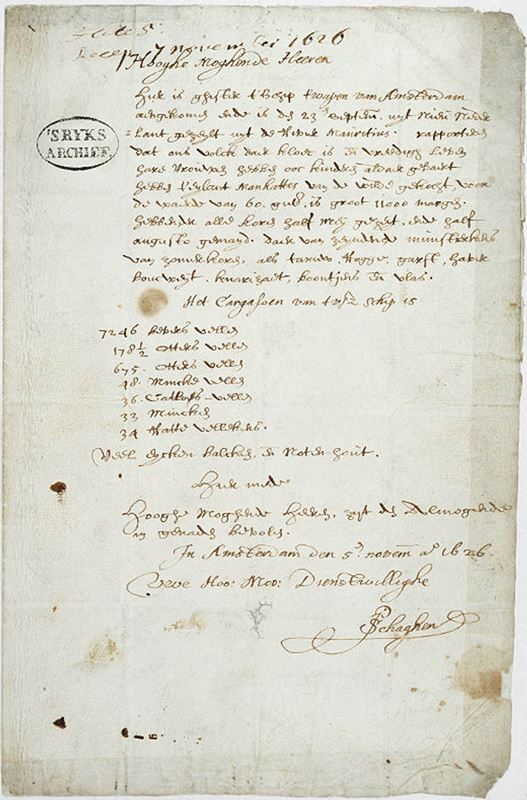 7 november 1626
Hooghe Moghende Heeren
'SRYKS
ARCHIEF
Hier is ghister t'Schip t'wapen van Amsterdam
aengekomen ende is den 23 septem: uyt Nieu Neder
lant gezeylt uyt de Rivier Mauritius. rapporteren
dat ons volck daer kloec is en vreedigh leven
hare Vrouwen hebben ooc kinderen aldaer gebaert
hebben t'eylant Manhattes van de wilde gekocht voor
de waerde van 60 guld: is groot 11000 morgen.
hebbende alle koren half mey gezeyt, ende half
augusto gemayd. daer van zeynden munsterkens
van zomerkoren, als tarwe, Rogge, garst, haver
boucweyt, knarizaet, boontjens en vlas.
Het Cargasoen van tvsz Schip is
7246 bevers vellen
178½ otters vellen
675. otters vellen
48. Mincke vellen
36. Catloes vellen
33 Mincken
34 Ratte vellekens.
Veel eycken balcken, en Noten hout.
Hier mede
Hooghe Moghende Heeren, zyt den Almogende
in genaden bevolen.
In Amsterdam den 5en novem ao 1626.
Uwe Hoo: Moo: Dienstwillighe
PSchaghen